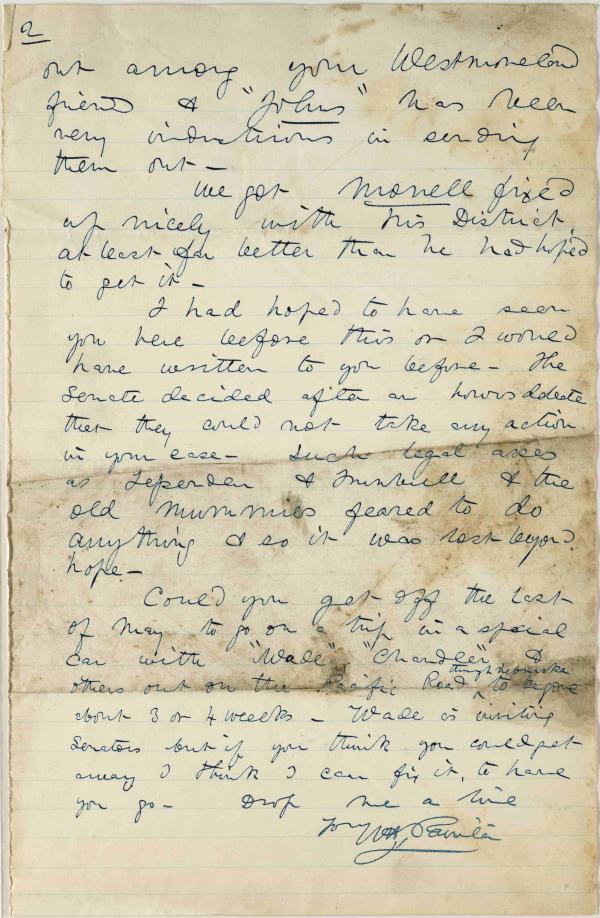 2
out among your Westmoreland
friends & "Johns" has been
very industrious in sending
them out -
We got Morrell fixed
up nicely with his District,
at least far better than he had hoped
to get it -
I had hoped to have seen
you here before this or I would
have written to you before - The
Senate decided after an hours debate
that they could not take any action
in your case - Such legal asses
as Fessenden & Trumbull & the
old Mummies feared to do
anything & so it was lost beyond
hope -
Could you get off the last
of May to go on a trip in a special
car with "Wade" "Chandler" &
through Nebraska
others out on the Pacific Road ^ to be gone
about 3 or 4 weeks - Wade is inviting
Senators but if you think you could get
away I think I can fix it, to have
you go - Drop me a line
Yours